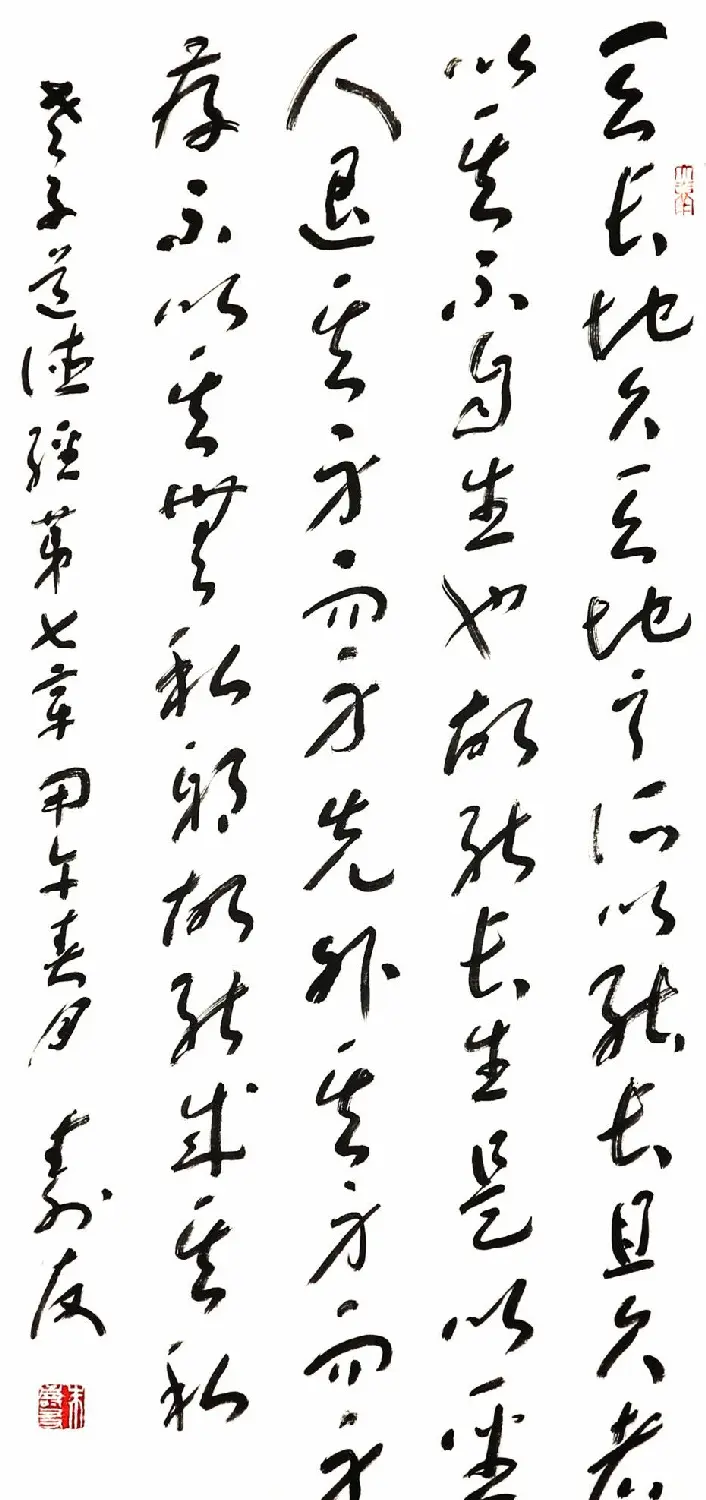 天長地久天地之所以能長且久者
以其不自生也故能長生是以聖
人退其身而身先外其身而身
存不以其無私邪故能成其私
老子道德經第七章甲午春月 壽友
朱壽友